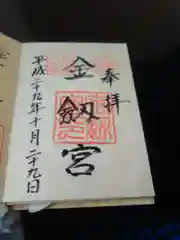 奉拝
金劔宮
平成二十九年十月二十九日